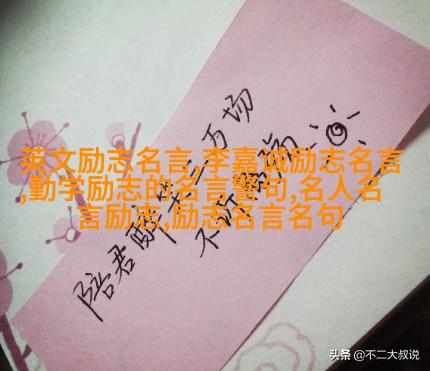 英文励志名言,李嘉诚励志名言
,勤学励志的名言警句,名人名
言励志,励志名言名句
陪君醉三万场
不诉离殇
头条 @不二大叔说